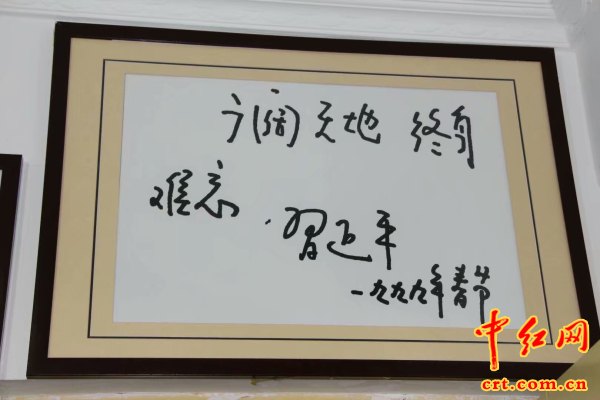 广阔天地 终身
难忘.
习近平
一九九九年春节
中红网
crt.com.cn